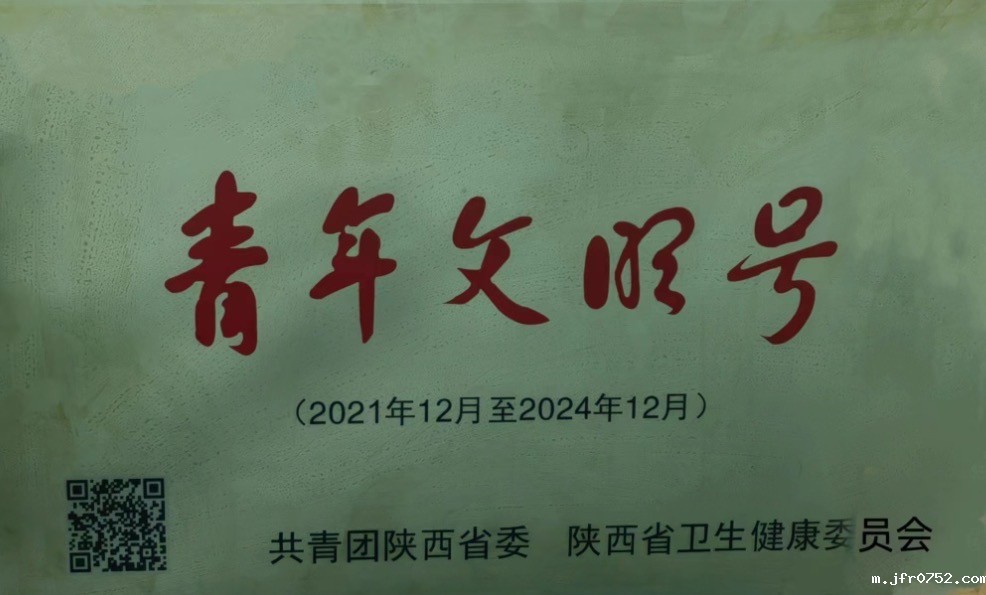 青年文明号
（2021年12月至2024年12月）
共青团陕西省委 陕西省卫生健康委员会
m.jfr0752.com